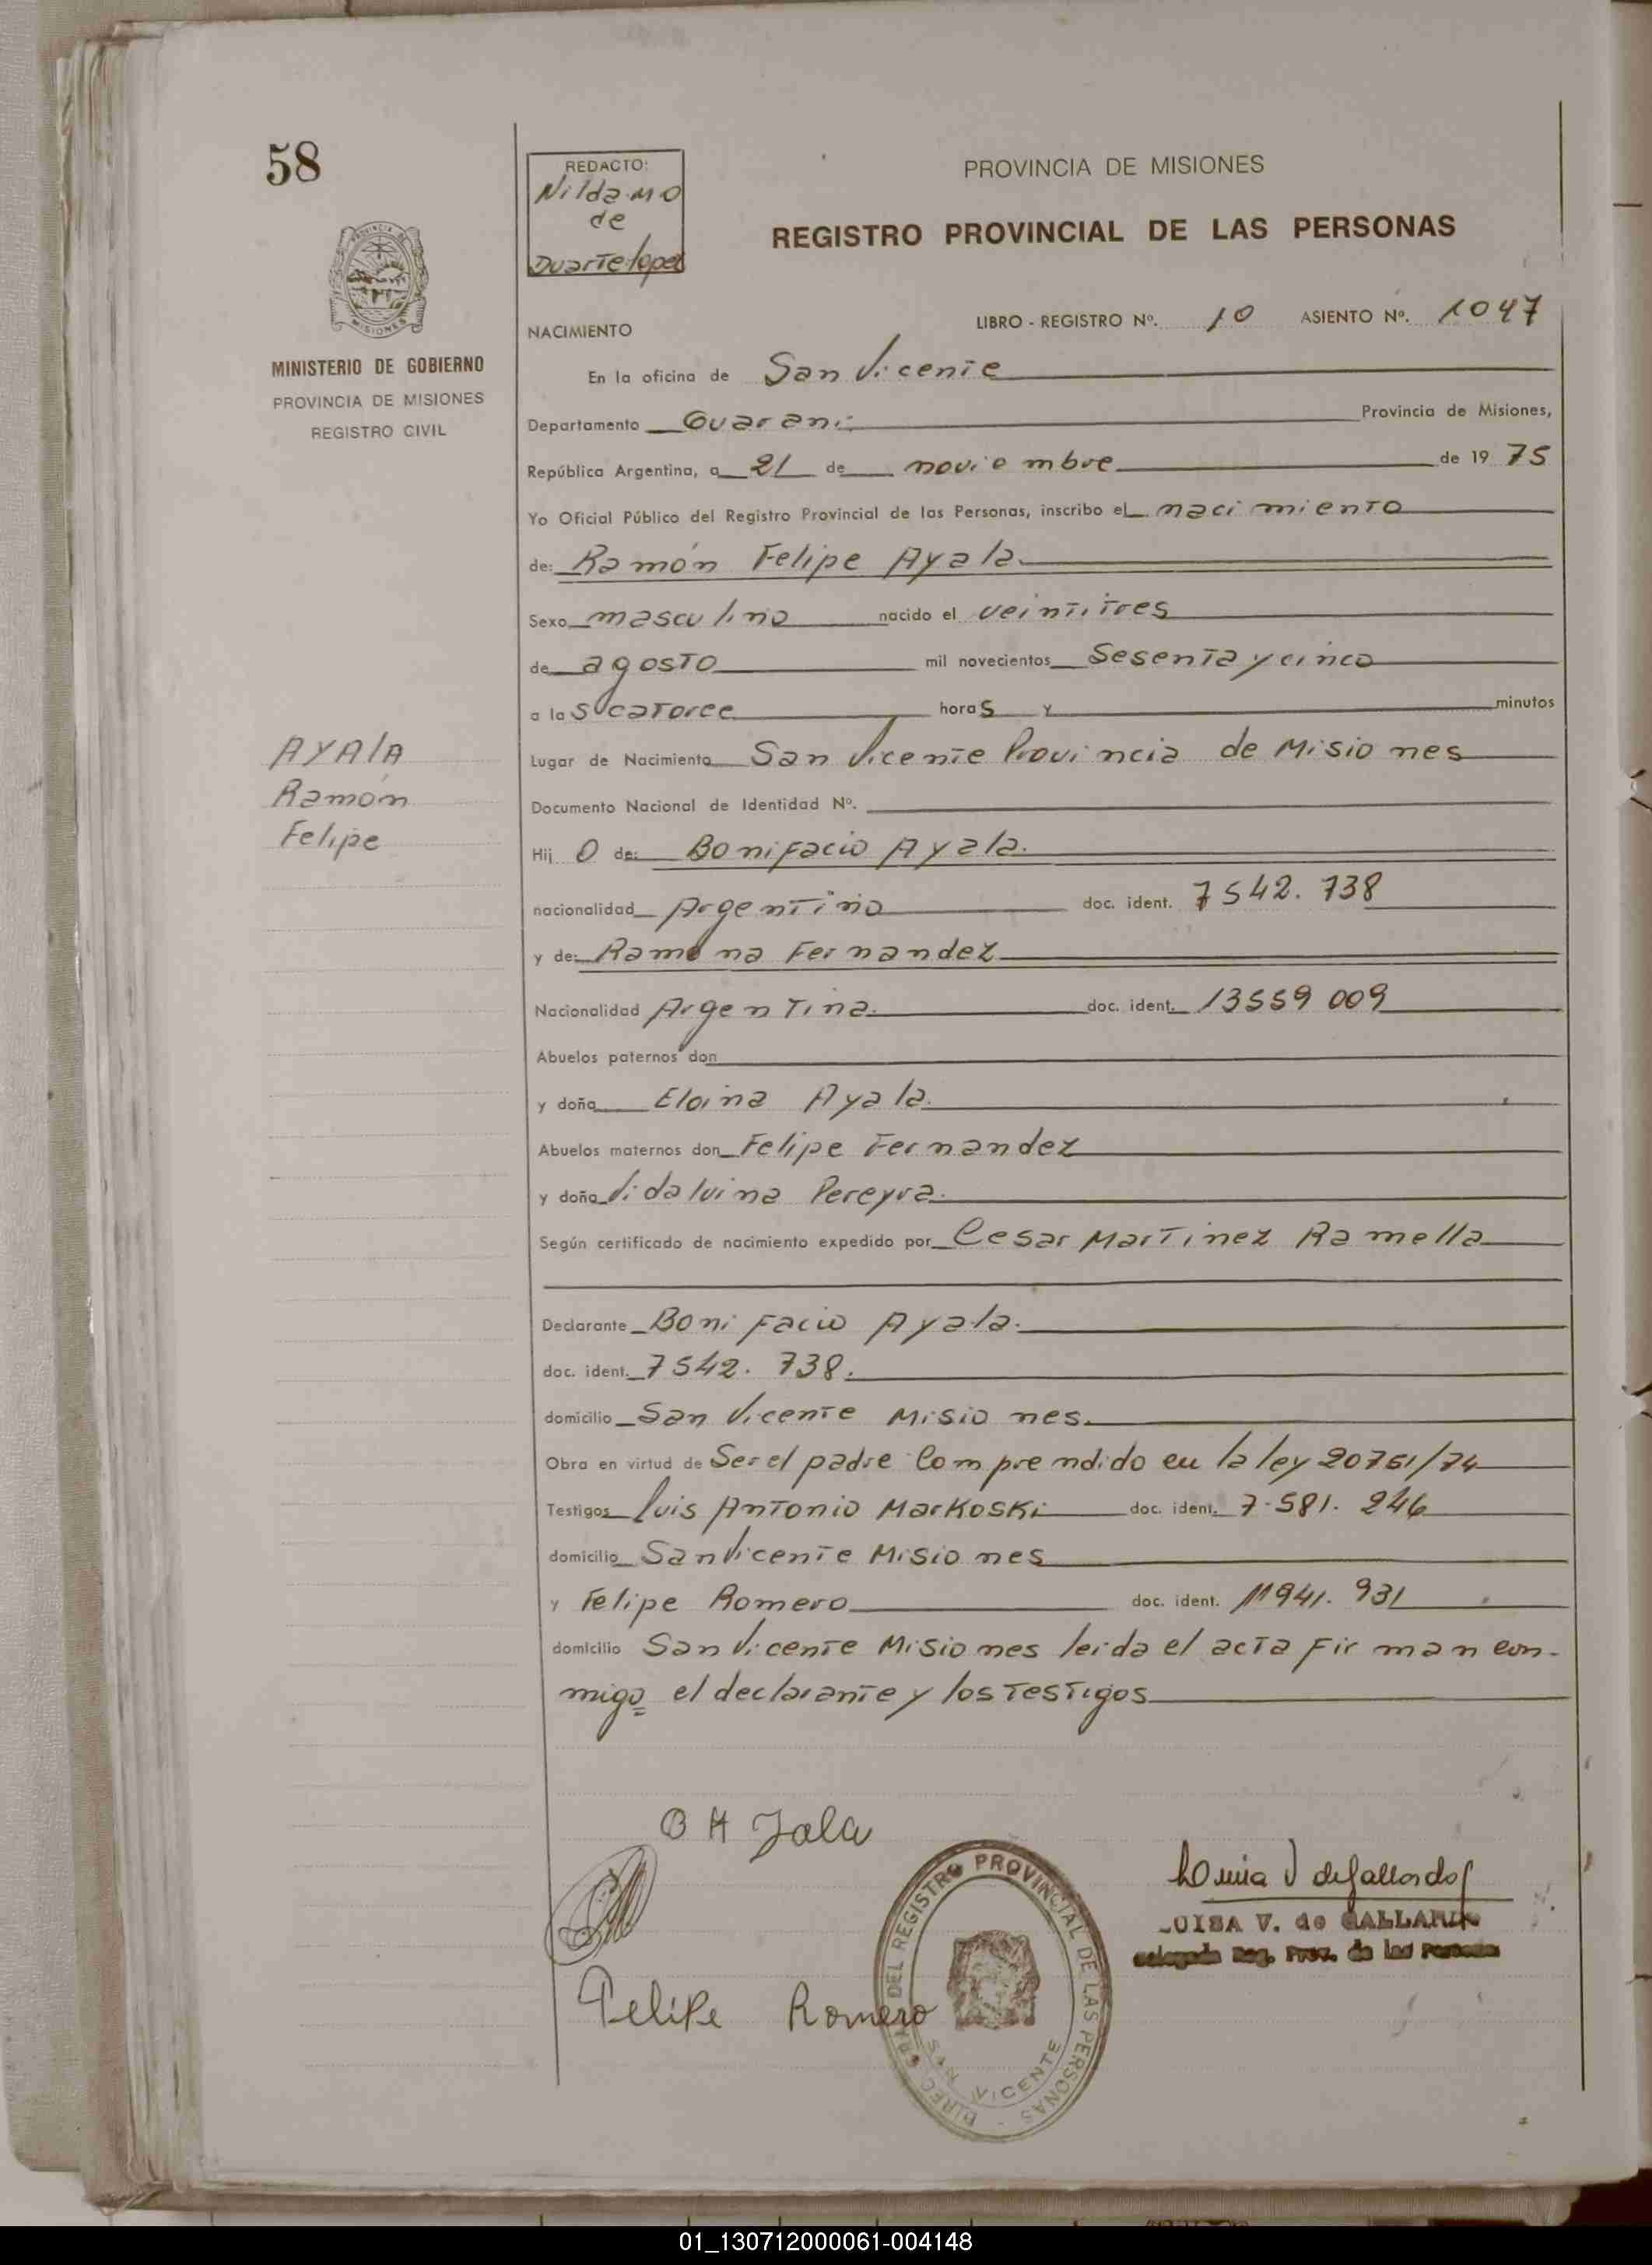 58
REDACTO:
Nilda. M O
de
Duarte lopez
PROVINCIA DE MISIONES
REGISTRO PROVINCIAL DE LAS PERSONAS
PROVINCIA DE
MISIONES
MINISTERIO DE GOBIERNO
PROVINCIA DE MISIONES
REGISTRO CIVIL
NACIMIENTO
LIBRO - REGISTRO Nº. 10 ASIENTO Nº. 1047
En la oficina de San Vicente
Departamento Guarani Provincia de Misiones,
República Argentina, a 21 de noviembre de 19 75
Yo Oficial Público del Registro Provincial de las Personas, inscribo el nacimiento
de: Ramón Felipe Ayala.
Sexo masculino nacido el veintitres
de agosto mil novecientos Sesenta y cinco
a las catorce horas y minutos
Lugar de Nacimiento San Vicente Provincia de Misiones
Documento Nacional de Identidad Nº.
Hijo de: Bonifacio Ayala.
nacionalidad Argentino doc. ident. 7542.738
y de: Ramona Fernandez
Nacionalidad Argentina. doc. ident. 13559 009
Abuelos paternos don
y doña Eloina Ayala.
Abuelos maternos don Felipe Fernandez
y doña Vidalvina Pereyra.
Según certificado de nacimiento expedido por Cesar Martinez Ramella
Declarante Bonifacio Ayala.
doc. ident. 7542.738.
domicilio San Vicente Misiones.
Obra en virtud de Ser el padre Comprendido en la ley 20751/74
Testigos Luis Antonio Markoski doc. ident. 7.581.246
domicilio San Vicente Misiones
y Felipe Romero doc. ident. 11941.931
domicilio San Vicente Misiones leida el acta Firman con-
migo el declarante y los Testigos
AYALA
Ramón
Felipe
B A Jala
Felipe Romero
DIREC. GRAL. DEL REGISTRO PROVINCIAL DE LAS PERSONAS
SAN VICENTE
V de Gallardo
LUISA V. de GALLARDO
Delegada Reg. Prov. de las Personas
01_130712000061-004148